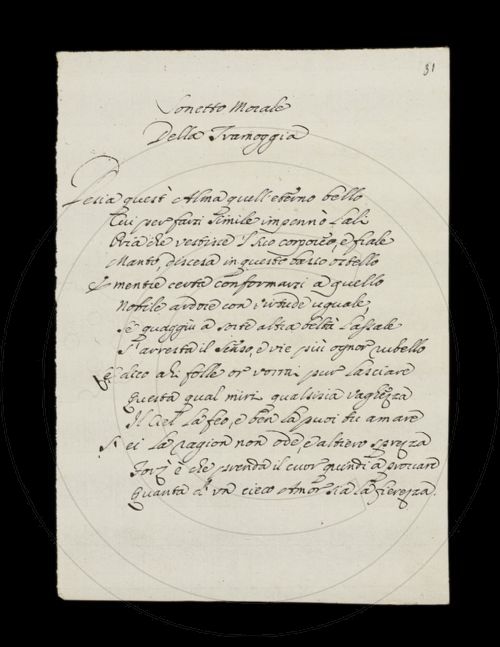 31
Sonetto Morale
Della Tramoggia
Desia quest' Alma quell'eterno bello
Cui per farsi simile impennò l'ali
Pria che vestirse Suo corporeo, e frale
Manto, discesa in questo basso ostello
mentre certa conformarsi a quello
Nobile ardore con virtude uguale,
Se quaggiù a sorte altra beltà l'assale
S'arresta il Senso, e vie più ognor rubello
Seco ahi folle or vorrai pur lasciare
Questa qual miri qualsisia vaghezza
Il Ciel la feo, e ben la puoi tu amare
S' ei la ragion non ode, e altiero sprezza
Forz' è che prenda il cuor quindi a provare
Quanta d' un cieco Amor sia la fierezza.